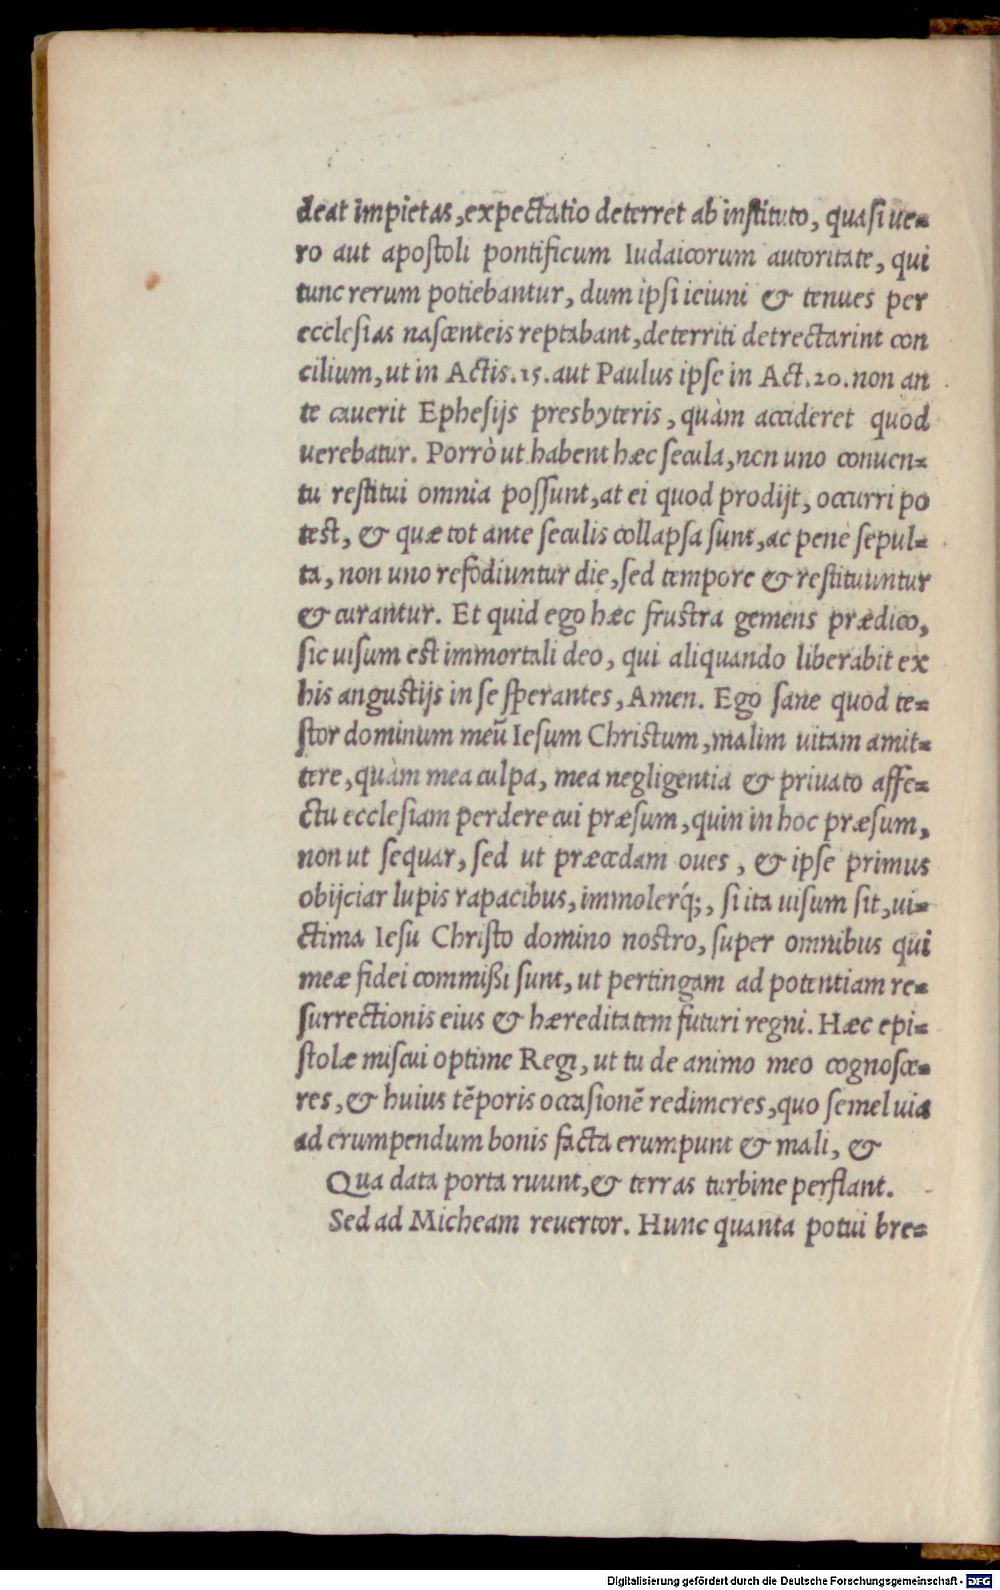 deat impietas, expectatio deterret ab instituto, quasi ue=
ro aut apostoli pontificum Iudaicorum autoritate, qui
tunc rerum potiebantur, dum ipsi ieiuni & tenues per
ecclesias nascenteis reptabant, deterriti detrectarint con
cilium, ut in Actis. 15. aut Paulus ipse in Act. 20. non an
te cauerit Ephesijs presbyteris, quàm accideret quod
uerebatur. Porrò ut habent hæc secula, non uno conuen=
tu restitui omnia possunt, at ei quod prodijt, occurri po
test, & quæ tot ante seculis collapsa sunt, ac pene sepul=
ta, non uno refodiuntur die, sed tempore & restituuntur
& curantur. Et quid ego hæc frustra gemens prædico,
sic uisum est immortali deo, qui aliquando liberabit ex
his angustijs in se sperantes, Amen. Ego sane quod te=
stor dominum meũ Iesum Christum, malim uitam amit=
tere, quàm mea culpa, mea negligentia & priuato affe=
ctu ecclesiam perdere cui præsum, quin in hoc præsum,
non ut sequar, sed ut præcedam oues, & ipse primus
obijciar lupis rapacibus, immolerq́;, si ita uisum sit, ui=
ctima Iesu Christo domino nostro, super omnibus qui
meæ fidei commißi sunt, ut pertingam ad potentiam re=
surrectionis eius & hæreditatem futuri regni. Hæc epi=
stolæ miscui optime Regi, ut tu de animo meo cognosce=
res, & huius tẽporis occasionẽ redimeres, quo semel uia
ad erumpendum bonis facta erumpunt & mali, &
Qua data porta ruunt, & terras turbine perflant.
Sed ad Micheam reuertor. Hunc quanta potui bre=
Digitalisierung gefördert durch die Deutsche Forschungsgemeinschaft - DFG